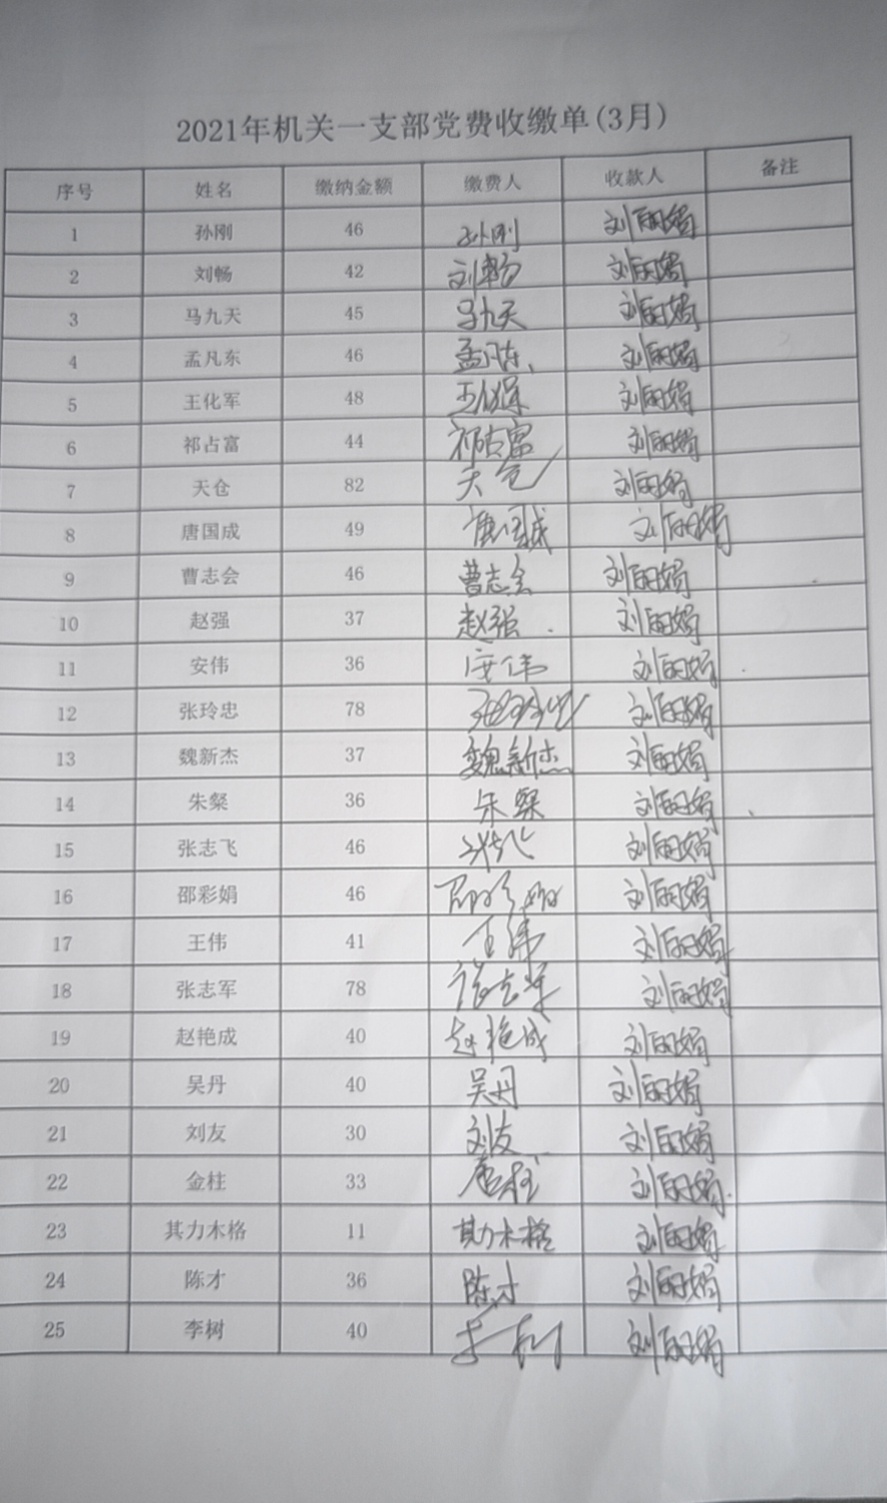 2021年机关一支部党费收缴单(3月)
序号 姓名 缴纳金额 缴费人 收款人 备注
1 孙刚 46 孙刚 刘丽娟
2 刘畅 42 刘畅 刘丽娟
3 马九天 45 马九天 刘丽娟
4 孟凡东 46 孟凡东 刘丽娟
5 王化军 48 王化军 刘丽娟
6 祁占富 44 祁占富 刘丽娟
7 天仓 82 天仓 刘丽娟
8 唐国成 49 唐国成 刘丽娟
9 曹志会 46 曹志会 刘丽娟
10 赵强 37 赵强 刘丽娟
11 安伟 36 安伟 刘丽娟
12 张玲忠 78 刘丽娟
13 魏新杰 37 魏新杰 刘丽娟
14 朱粲 36 朱粲 刘丽娟
15 张志飞 46 刘丽娟
16 邵彩娟 46 邵彩娟 刘丽娟
17 王伟 41 王伟 刘丽娟
18 张志军 78 张志军 刘丽娟
19 赵艳成 40 赵艳成 刘丽娟
20 吴丹 40 吴丹 刘丽娟
21 刘友 30 刘友 刘丽娟
22 金柱 33 刘丽娟
23 其力木格 11 其力木格 刘丽娟
24 陈才 36 陈才 刘丽娟
25 李树 40 李树 刘丽娟